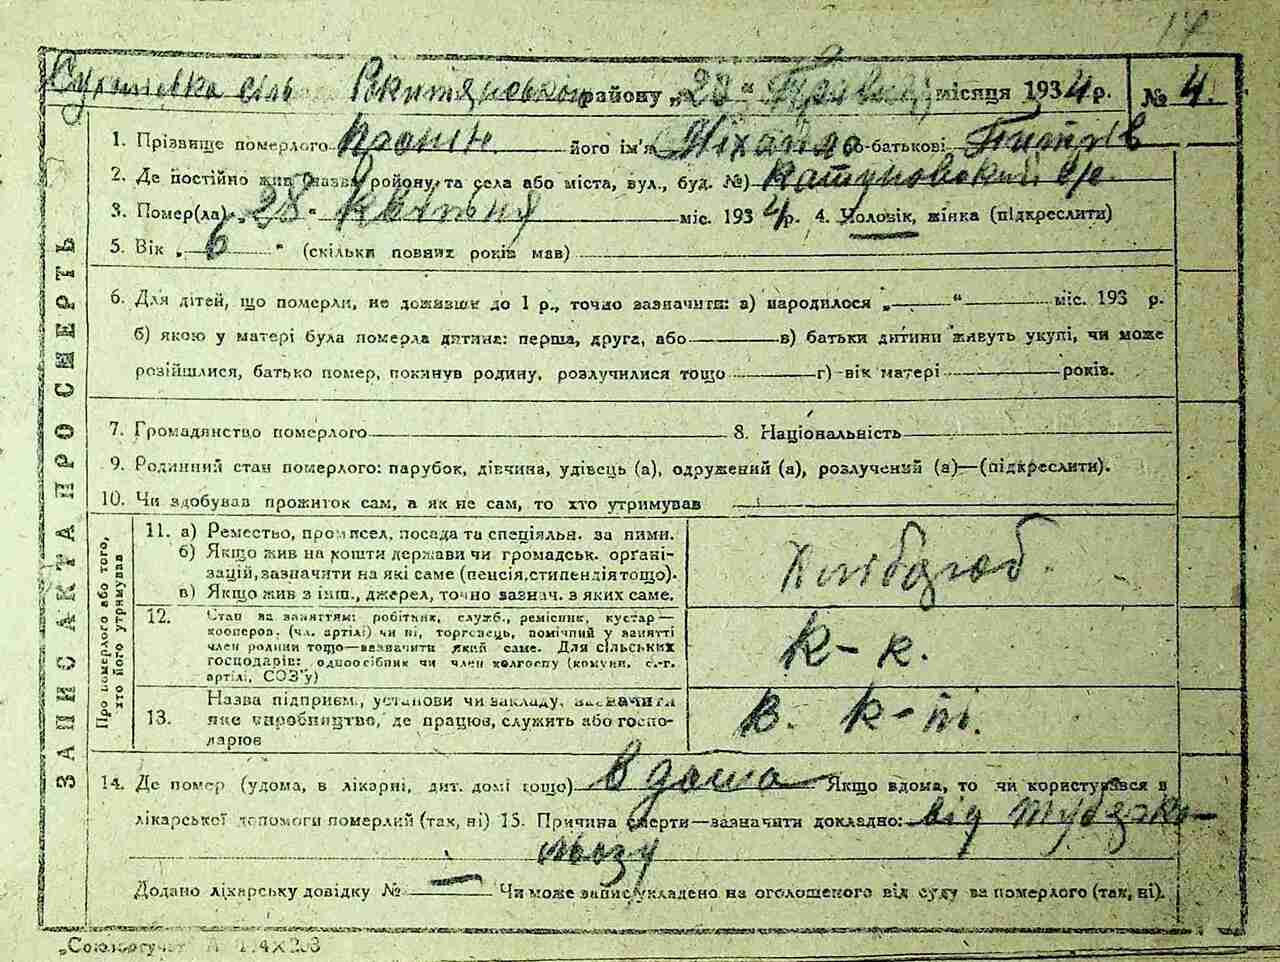 14
сіль Рокитянського району „28“ місяця 1934 р. № 4.
ЗАПИС АКТА ПРО СМЕРТЬ
1. Прізвище померлого його ім'я Міхайло по-батькові
2. Де постійно жив (назва району та села або міста, вул., буд. №) с/р.
3. Помер(ла) „28“ квітня міс. 1934 р. 4. Чоловік, жінка (підкреслити)
5. Вік „6“ (скільки повних років мав)
6. Для дітей, що померли, не доживши до 1 р., точно зазначити: а) народилося „ “ міс. 193 р.
б) якою у матері була померла дитина: перша, друга, або в) батьки дитини живуть укупі, чи може
розійшлися, батько помер, покинув родину, розлучилися тощо г) вік матері років.
7. Громадянство померлого 8. Національність
9. Родинний стан померлого: парубок, дівчина, удівець (а), одружений (а), розлучений (а)—(підкреслити).
10. Чи здобував прожиток сам, а як не сам, то хто утримував
Про померлого або того, хто його утримував
11. а) Ремество, промисел, посада та спеціяльн. за ними.
б) Якщо жив на кошти держави чи громадськ. органі-
зацій, зазначити на які саме (пенсія, стипендія тощо).
в) Якщо жив з інш., джерел, точно зазнач. з яких саме.
Хлібороб.
12. Стан за заняттям: робітник, служб., ремісник, кустар—
кооперов. (чл. артілі) чи ні, торговець, помічний у занятті
член родини тощо—зазначити який саме. Для сільських
господарів: одноосібник чи член колгоспу (комуни, с.-г.
артілі, СОЗ'у)
к-к.
13. Назва підприєм., установи чи закладу, зазначити
яке виробництво, де працює, служить або госпо-
дарює
в. к-пі.
14. Де помер (удома, в лікарні, дит. домі тощо) в дома Якщо вдома, то чи користувався в
лікарської допомоги померлий (так, ні) 15. Причина смерти—зазначити докладно: від тубярко-
льозу
Додано лікарську довідку № — Чи може запис укладено на оголошеного від суду за померлого (так, ні).